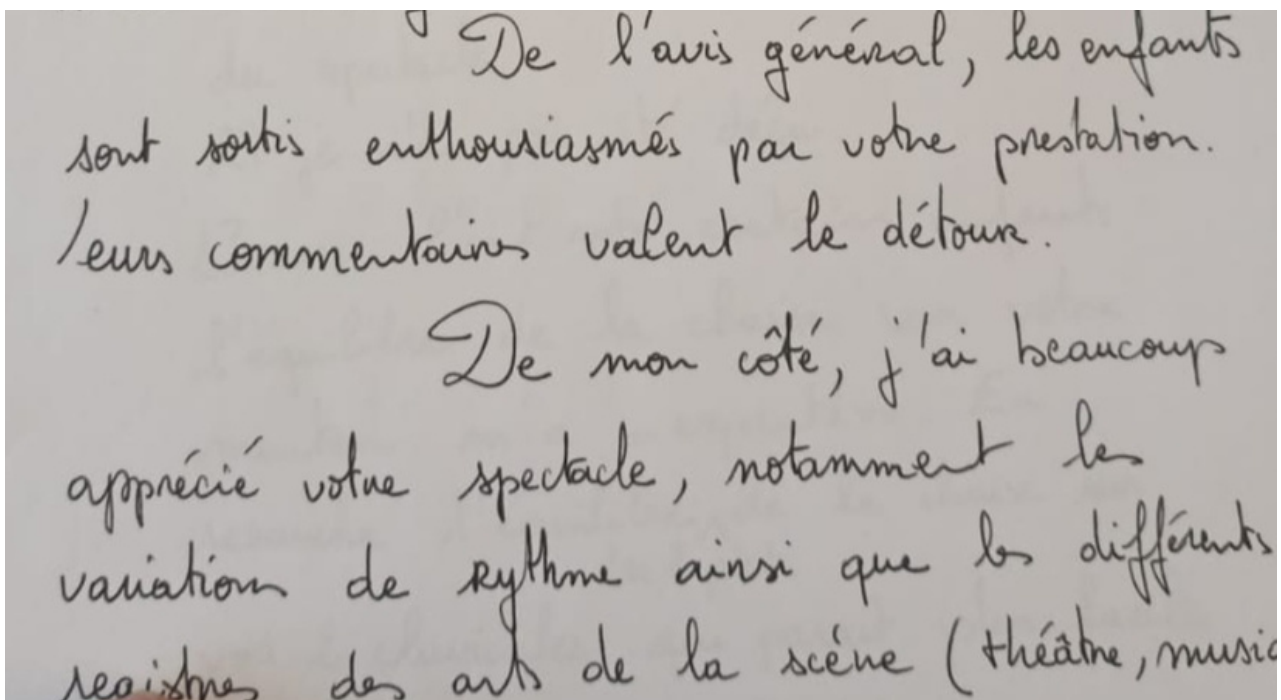 De l'avis général, les enfants
sont sortis enthousiasmés par votre prestation.
leurs commentaires valent le détour.
De mon côté, j'ai beaucoup
apprécié votre spectacle, notamment les
variations de rythme ainsi que les différents
registres des arts de la scène (théâtre, music